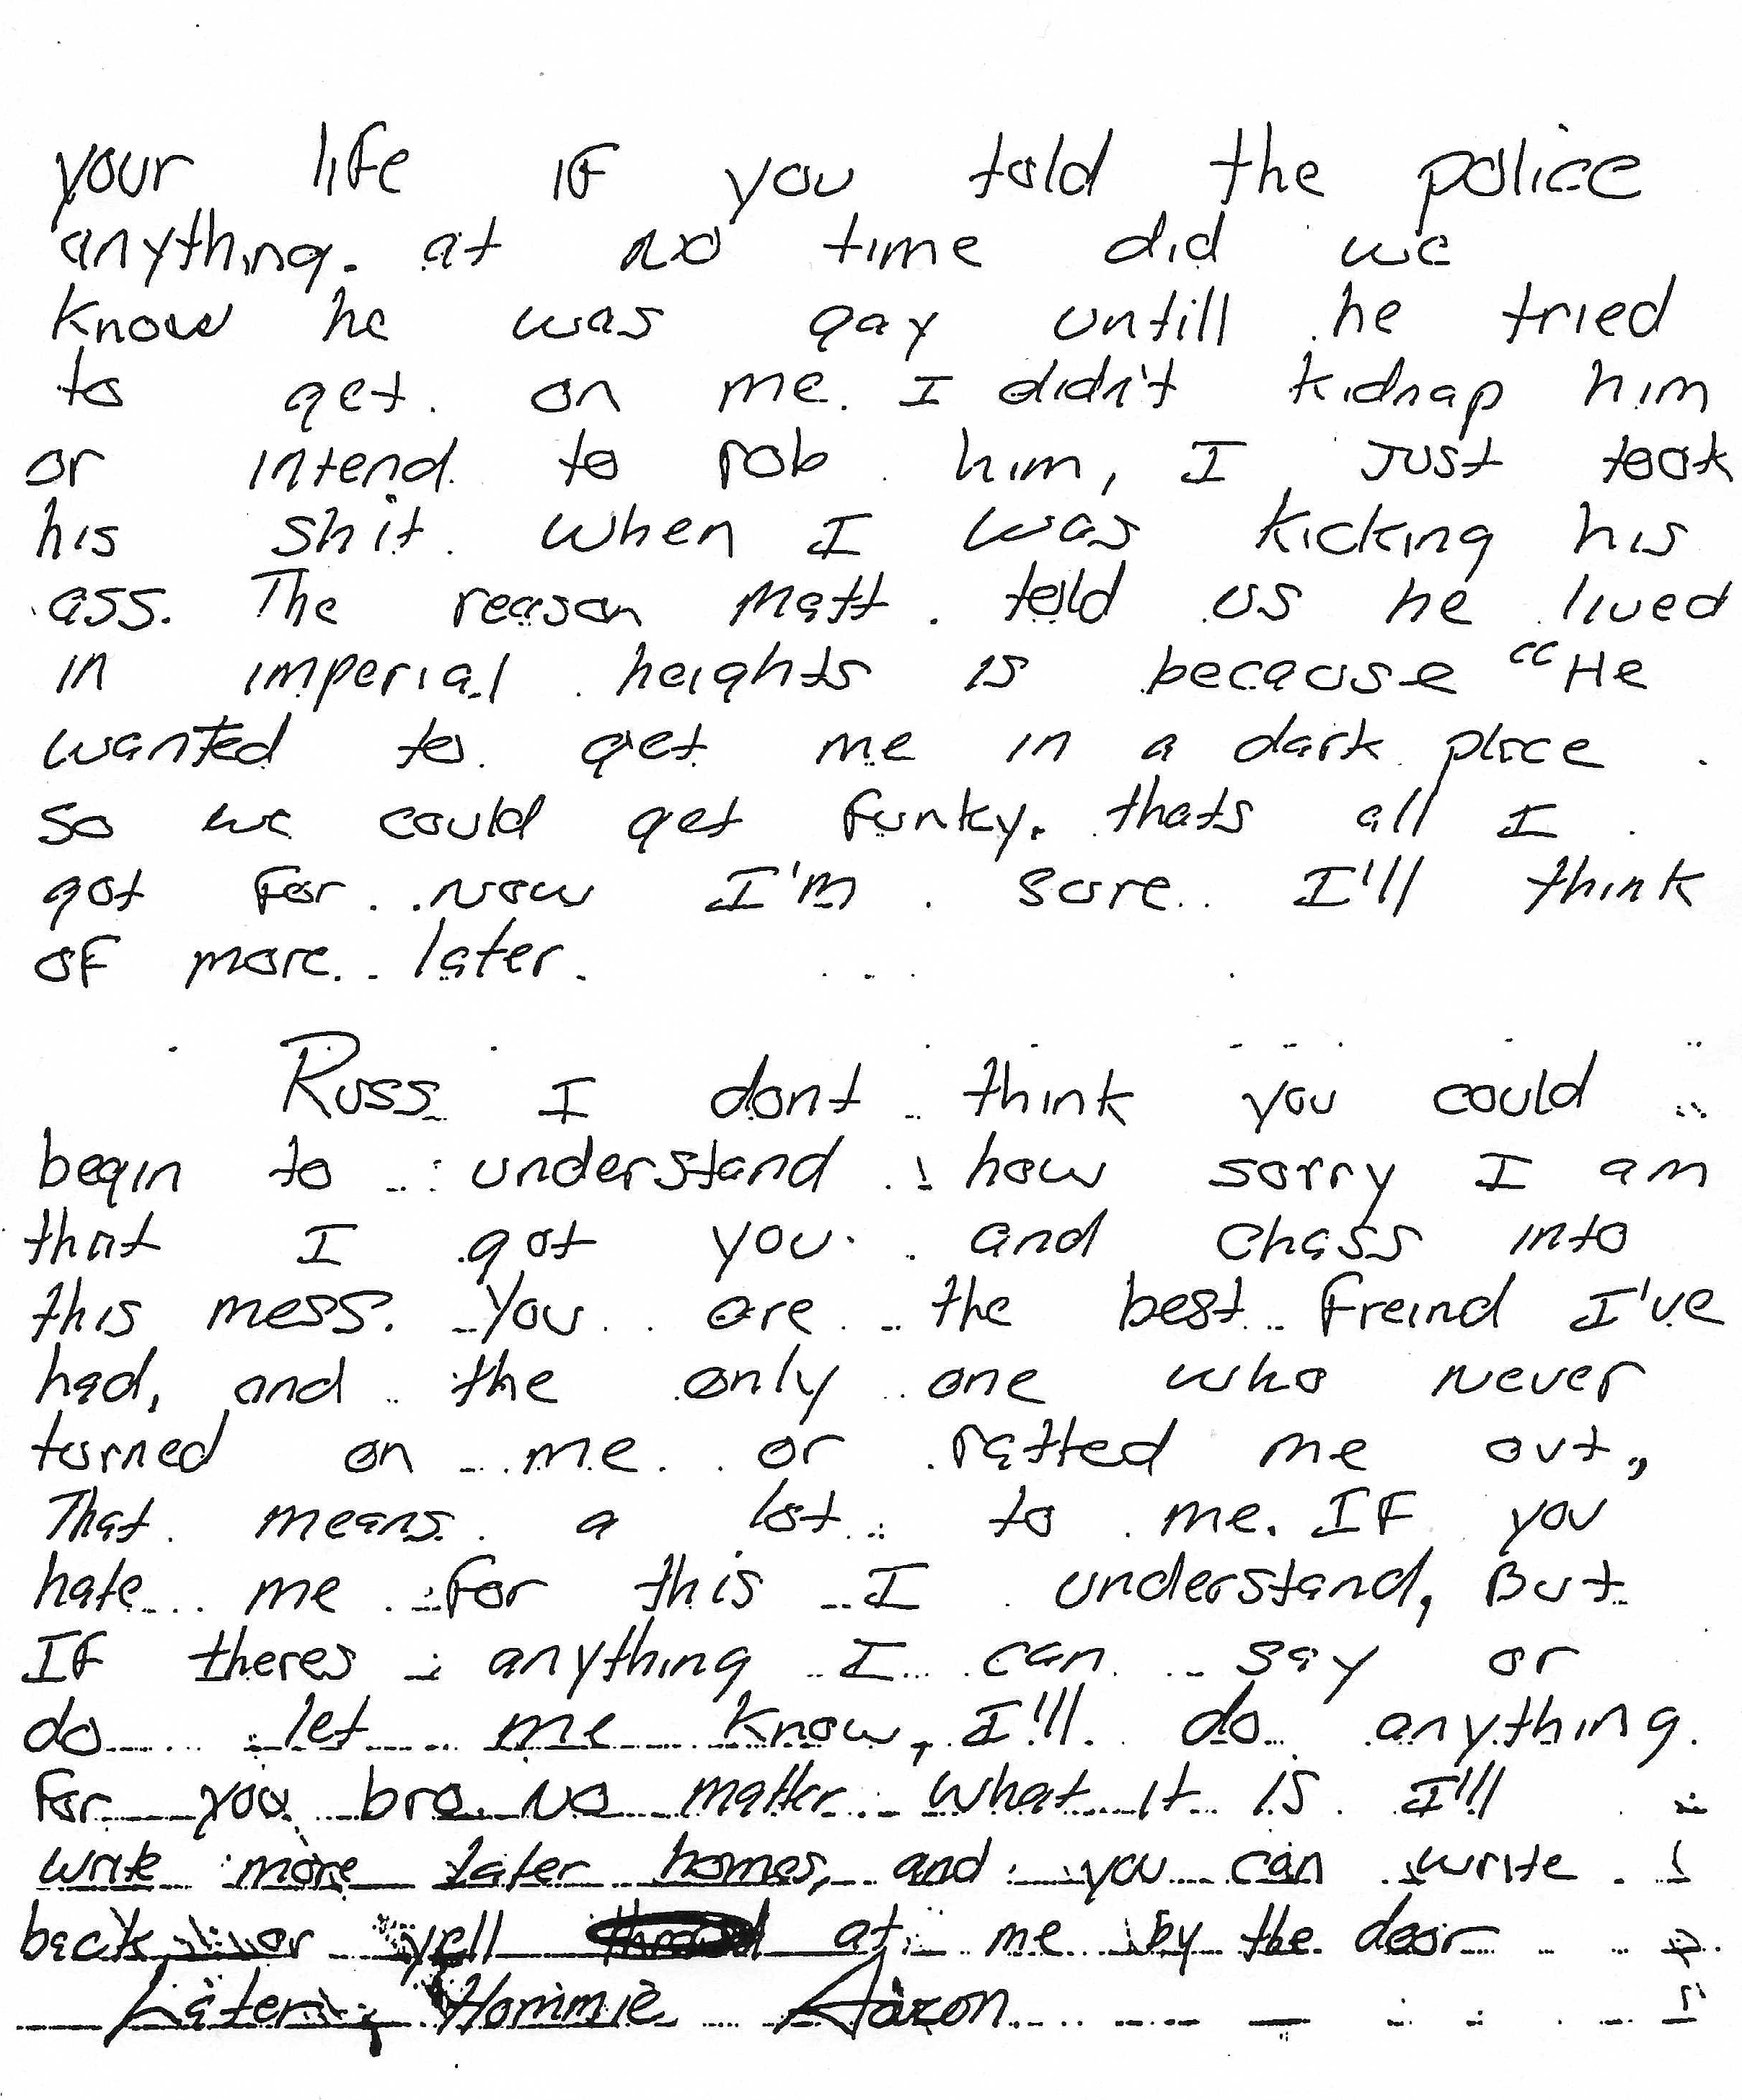 your life IF you told the police
anything. at no time did we
know he was gay untill he tried
to get on me. I didn't kidnap him
or intend to rob him, I Just took
his shit when I was kicking his
ass. The reason Matt told us he lived
in imperial heights is because "He
wanted to get me in a dark place
so we could get funky. thats all I
got for now I'm sure I'll think
of more later.
Russ I dont think you could
begin to understand how sorry I am
that I got you and Chass into
this mess. You are the best freind I've
had, and the only one who never
turned on me or ratted me out,
That means a lot to me. IF you
hate me for this I understand, But
IF theres anything I can say or
do let me know, I'll do anything
for you bro. No matter what it is. I'll
write more later homes, and you can write
back or yell at me by the door
Later Hommie Aaron